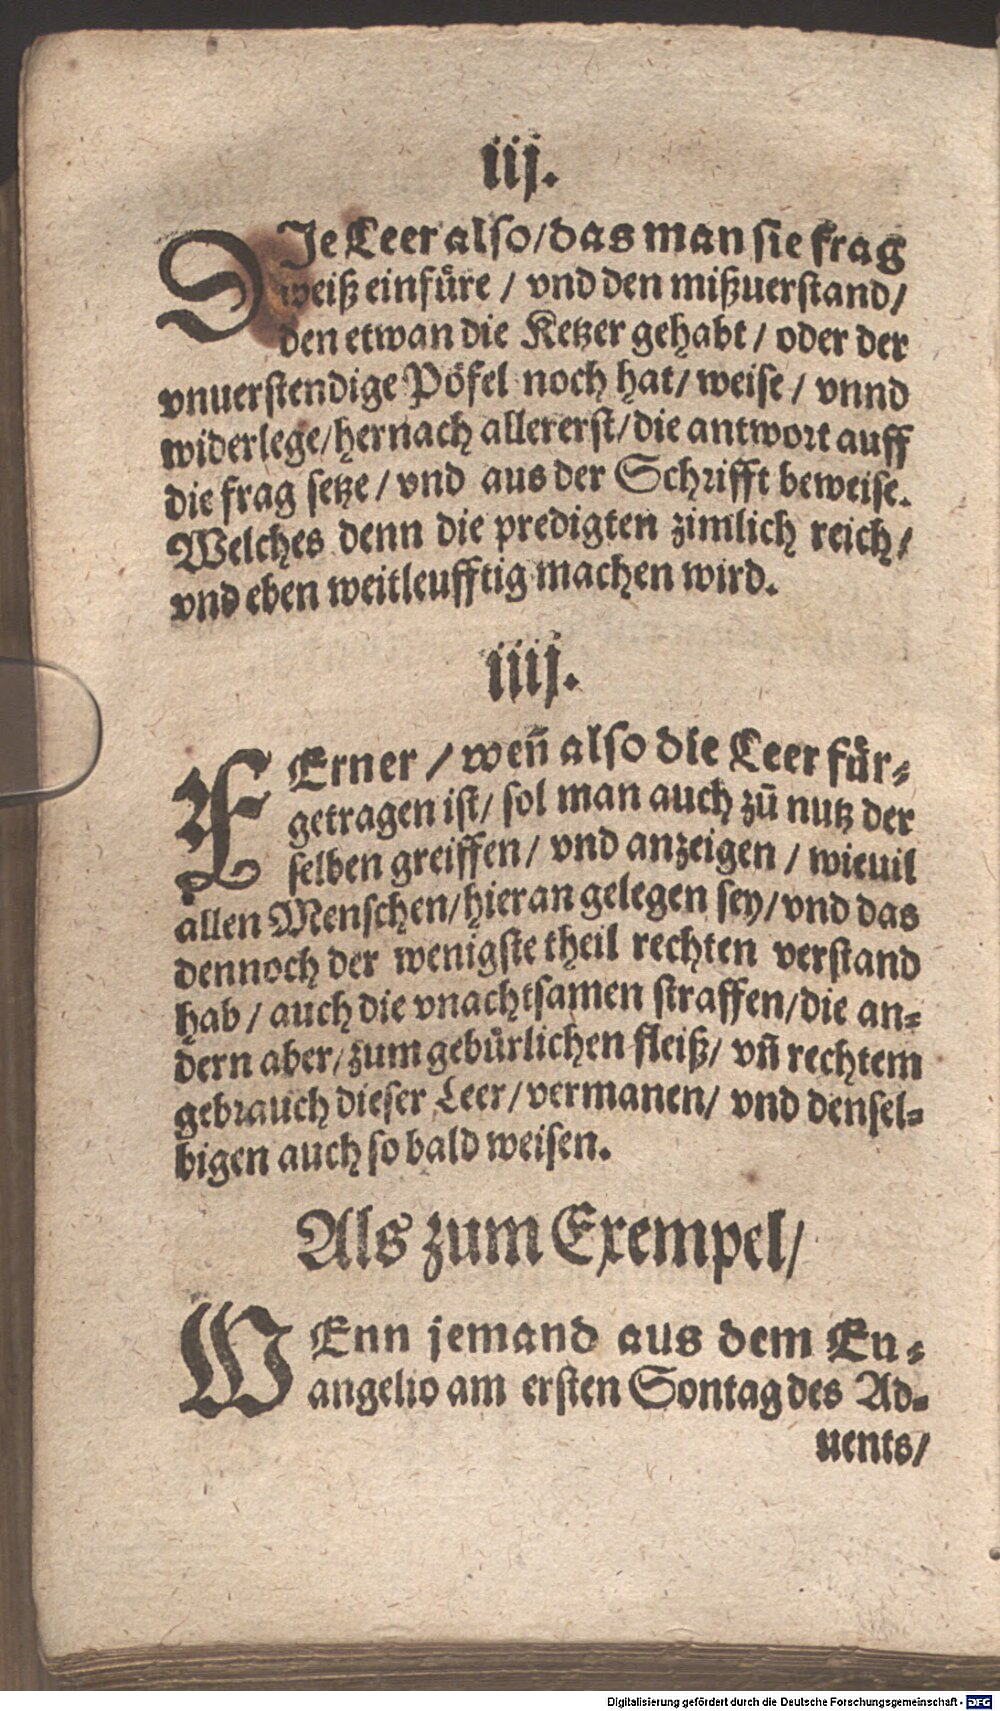 iij.
DIe Leer also/das man sie frag
weiß einfüre / vnd den mißuerstand/
den etwan die Ketzer gehabt / oder der
vnuerstendige Pöfel noch hat/ weise / vnnd
widerlege/hernach allererst/die antwort auff
die frag setze / vnd aus der Schrifft beweise.
Welches denn die predigten zimlich reich/
vnd eben weitleufftig machen wird.
iiij.
FErner / weñ also die Leer für-
getragen ist/ sol man auch zū nutz der
selben greiffen/ vnd anzeigen / wieuil
allen Menschen/hieran gelegen sey/vnd das
dennoch der wenigste theil rechten verstand
hab / auch die vnachtsamen straffen/die an-
dern aber/zum gebürlichen fleiß/ vñ rechtem
gebrauch dieser Leer/vermanen/ vnd densel-
bigen auch so bald weisen.
Als zum Exempel/
WEnn jemand aus dem Eu-
angelio am ersten Sontag des Ad-
uents/
Digitalisierung gefördert durch die Deutsche Forschungsgemeinschaft - DFG